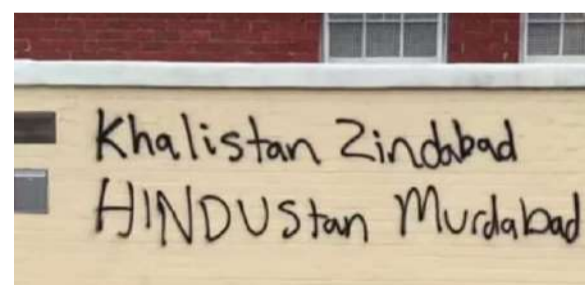 Khalistan Zindabad
HINDUStan Murdabad